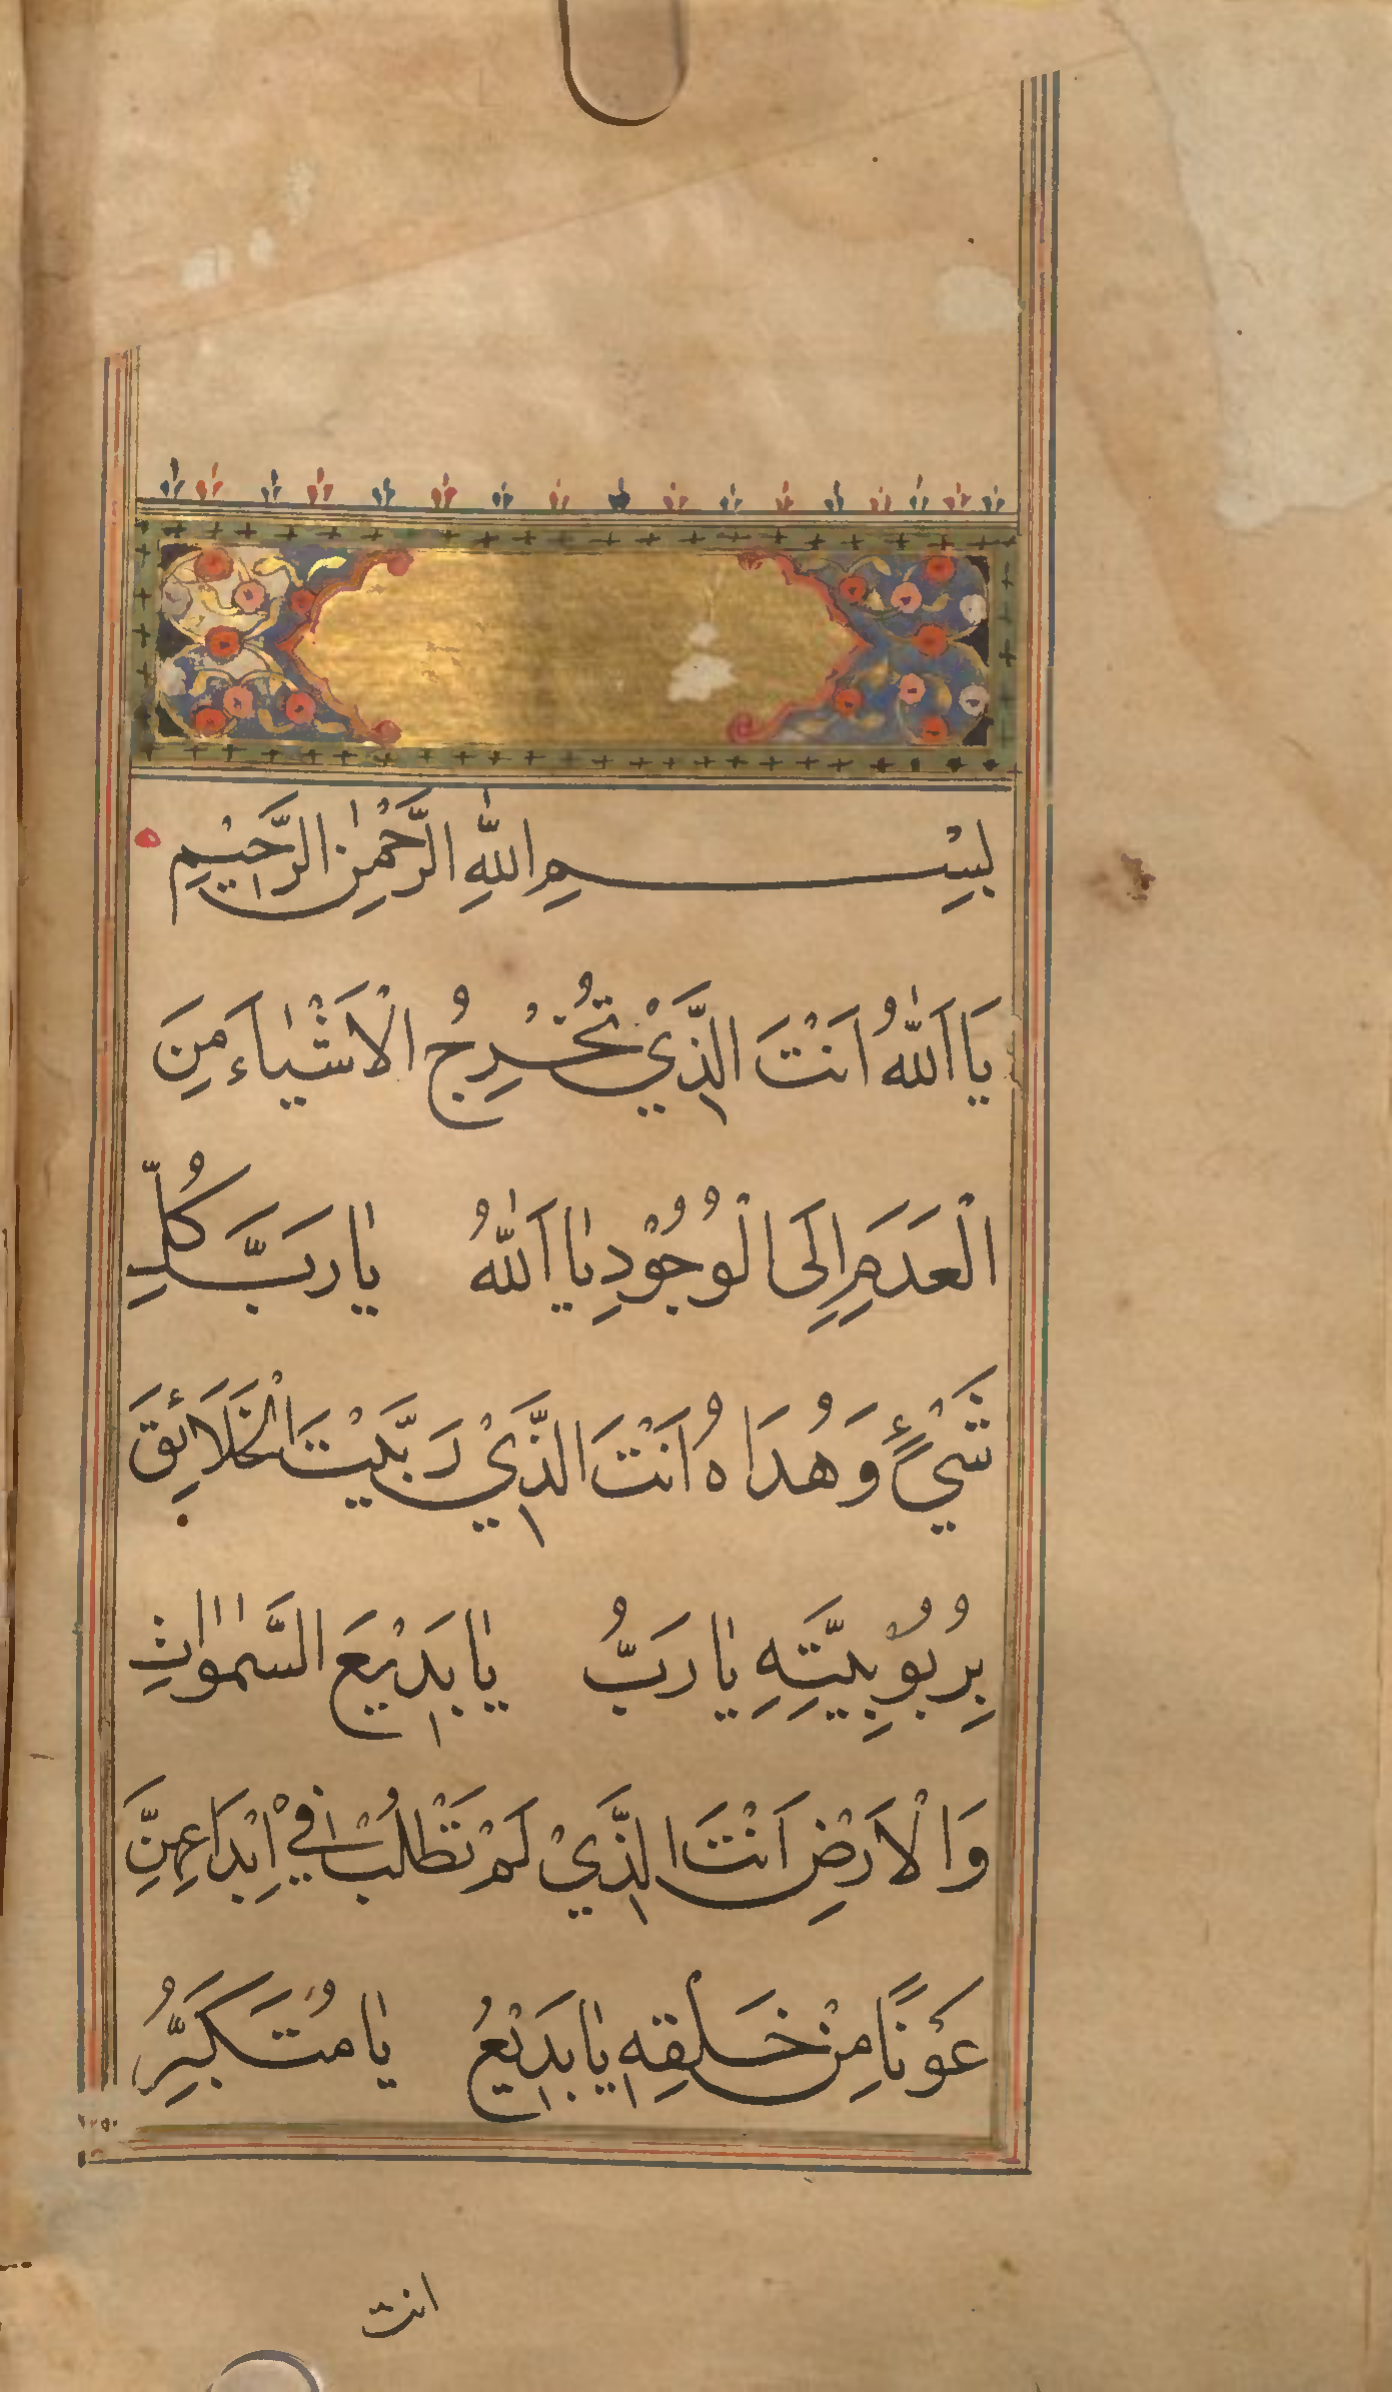 بِسْمِ اللّٰهِ الرَّحْمٰنِ الرَّحِيْمِ
يَا اَللّٰهُ اَنْتَ الَّذِيْ تُخْرِجُ الْاَشْيٰاءَ مِنَ
الْعَدَمِ اِلَى الْوُجُوْدِ يٰا اَللّٰهُ يٰا رَبَّ كُلِّ
شَيْءٍ وَهُدَاهُ اَنْتَ الَّذِيْ رَبَّيْتَ الْخَلَائِقَ
بِرُبُوْبِيَّتِهِ يٰا رَبُّ يٰا بَدِيْعَ السَّمٰوٰاتِ
وَالْاَرْضِ اَنْتَ الَّذِيْ لَمْ تَطْلُبْ فِيْ اِبْدَاعِهِنَّ
عَوْنًا مِنْ خَلْقِهِ يٰا بَدِيْعُ يٰا مُتَكَبِّرُ
انت